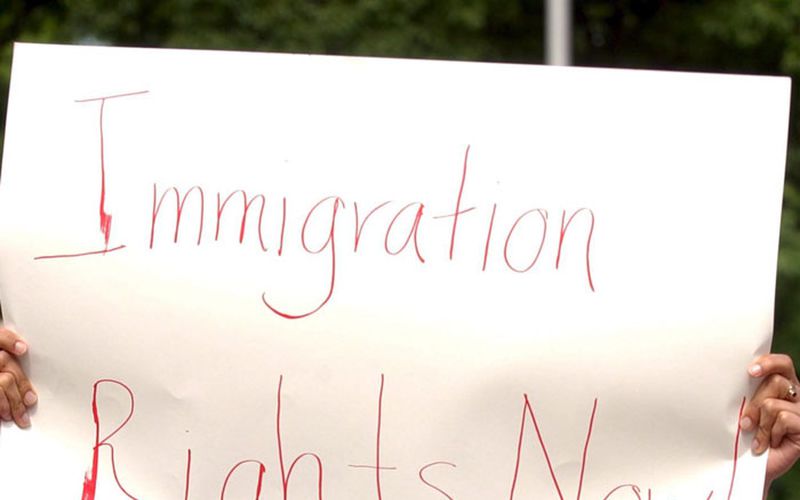 Immigration
Rights Now!